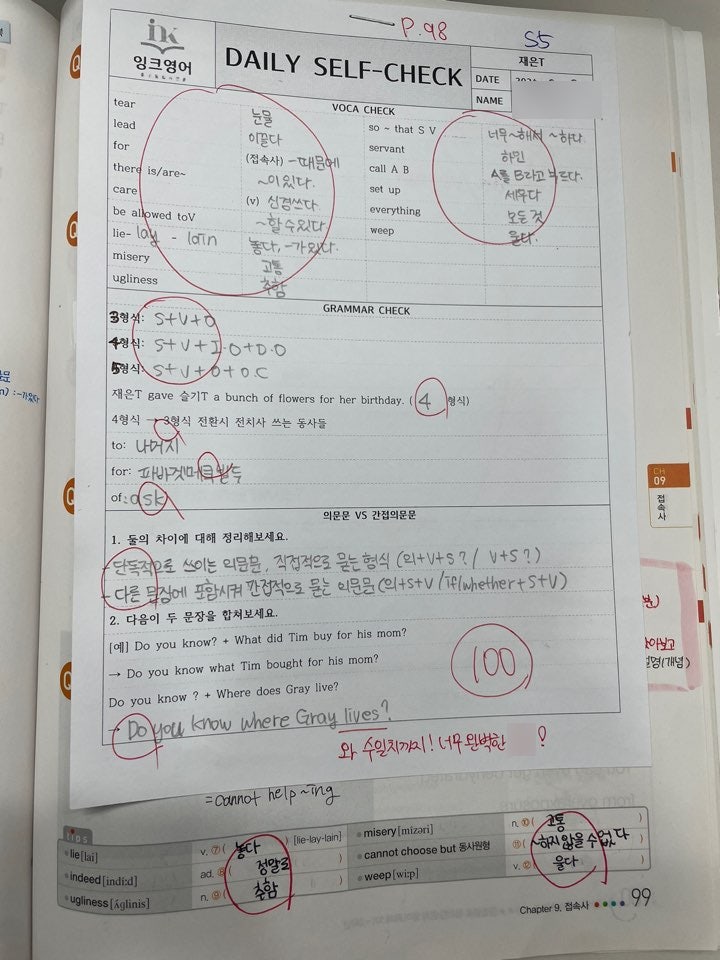 P.98
S5
ink
잉크영어
DAILY SELF-CHECK
재은T
DATE
NAME
VOCA CHECK
tear 눈물
lead 이끌다
for (접속사) -때문에
there is/are~ ~이 있다.
care (v) 신경쓰다
be allowed toV ~할 수 있다
lie- lay - lain 놓다, -가 있다.
misery 고통
ugliness 추함
so ~ that S V 너무~해서 ~하다
servant 하인
call A B A를 B라고 부르다.
set up 세우다
everything 모든 것
weep 울다.
GRAMMAR CHECK
3형식: S+V+O
4형식: S+V+I.O+D.O
5형식: S+V+O+O.C
재은T gave 슬기T a bunch of flowers for her birthday. ( 4 형식)
4형식 → 3형식 전환시 전치사 쓰는 동사들
to: 나머지
for:
of: ask
의문문 VS 간접의문문
1. 둘의 차이에 대해 정리해보세요.
- 단독적으로 쓰이는 의문문, 직접적으로 묻는 형식 (의+V+S? / V+S?)
- 다른 문장에 포함시켜 간접적으로 묻는 의문문 (의+S+V / if/whether+S+V)
2. 다음이 두 문장을 합쳐보세요.
[예] Do you know? + What did Tim buy for his mom?
→ Do you know what Tim bought for his mom?
Do you know ? + Where does Gray live?
→ Do you know where Gray lives?
100
와 수일치까지! 너무 완벽한 !
= cannot help ~ing
tips
lie[lai] v. ⑦( 놓다 ) [lie-lay-lain]
indeed[indíːd] ad. ⑧( 정말로 )
ugliness[ʌ́glinis] n. ⑨( 추함 )
misery[mízəri] n. ⑩( 고통 )
cannot choose but 동사원형 ⑪( ~하지 않을 수 없다 )
weep[wiːp] v. ⑫( 울다 )
Chapter 9. 접속사 99
CH
09
접속사